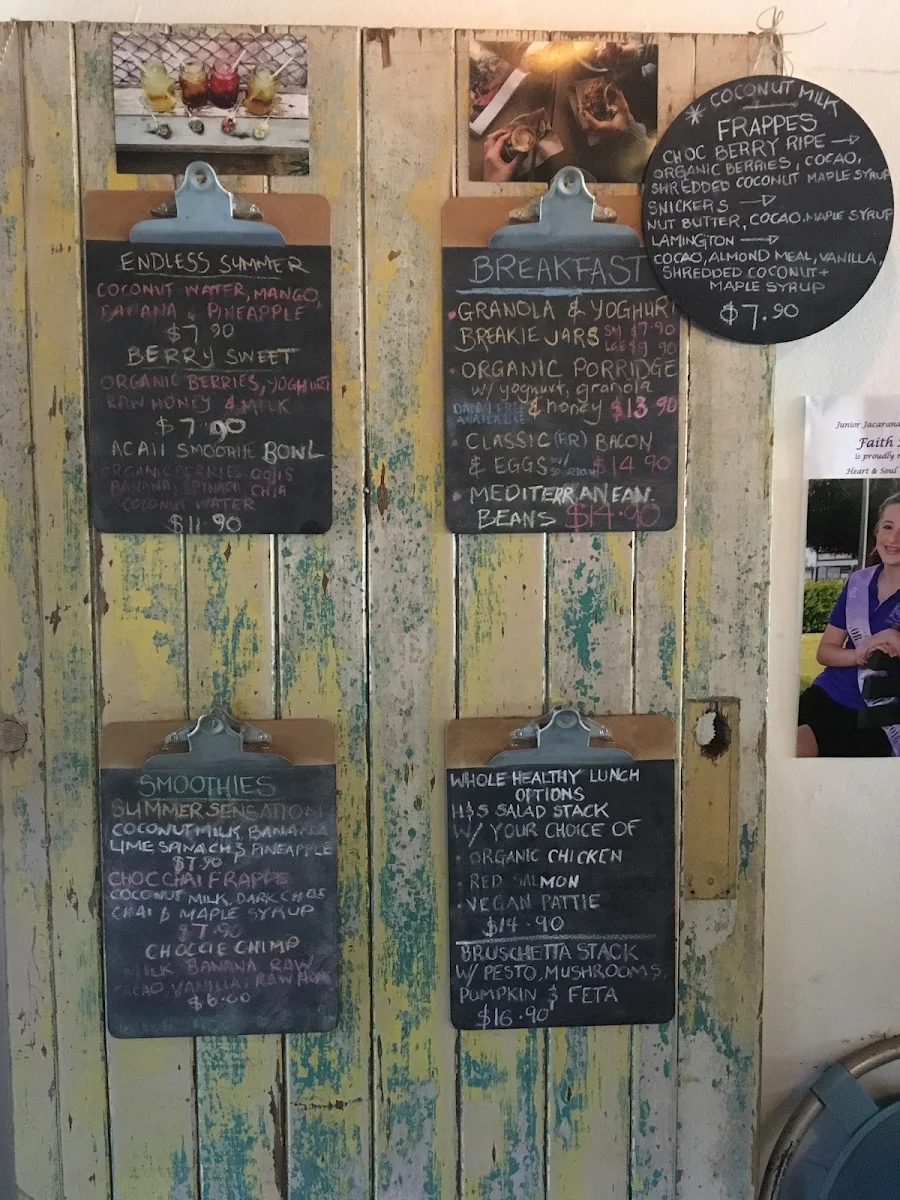 ENDLESS SUMMER
COCONUT WATER, MANGO,
BANANA & PINEAPPLE
$7.90
BERRY SWEET
ORGANIC BERRIES, YOGHURT
RAW HONEY & MILK
$7.90
ACAII SMOOTHIE BOWL
ORGANIC BERRIES GOJIS
BANANA, SPINACH CHIA
COCONUT WATER
$11.90
BREAKFAST
GRANOLA & YOGHURT
BREAKIE JARS SM $7.90
LGE $9.90
ORGANIC PORRIDGE
w/ yoghurt, granola
DAIRY FREE AVAILABLE & honey $13.90
CLASSIC (FR) BACON
& EGGS w/ $14.90
MEDITERRANEAN
BEANS $14.90
* COCONUT MILK
FRAPPES
CHOC BERRY RIPE →
ORGANIC BERRIES, COCAO,
SHREDDED COCONUT MAPLE SYRUP
SNICKERS →
NUT BUTTER, COCAO, MAPLE SYRUP
LAMINGTON →
COCAO, ALMOND MEAL, VANILLA,
SHREDDED COCONUT +
MAPLE SYRUP
$7.90
Junior Jacaran
Faith
is proudly
Heart & Soul
SMOOTHIES
SUMMER SENSATION
COCONUT MILK, BANANA
LIME SPINACH & PINEAPPLE
$7.90
CHOC CHAI FRAPPE
COCONUT MILK, DARK CHOC
CHAI & MAPLE SYRUP
$7.90
CHOCCIE CHIMP
MILK BANANA RAW
CACAO VANILLA, RAW HONEY
$6.00
WHOLE HEALTHY LUNCH
OPTIONS
H&S SALAD STACK
W/ YOUR CHOICE OF
· ORGANIC CHICKEN
· RED SALMON
· VEGAN PATTIE
$14.90
BRUSCHETTA STACK
W/ PESTO, MUSHROOMS,
PUMPKIN & FETA
$16.90